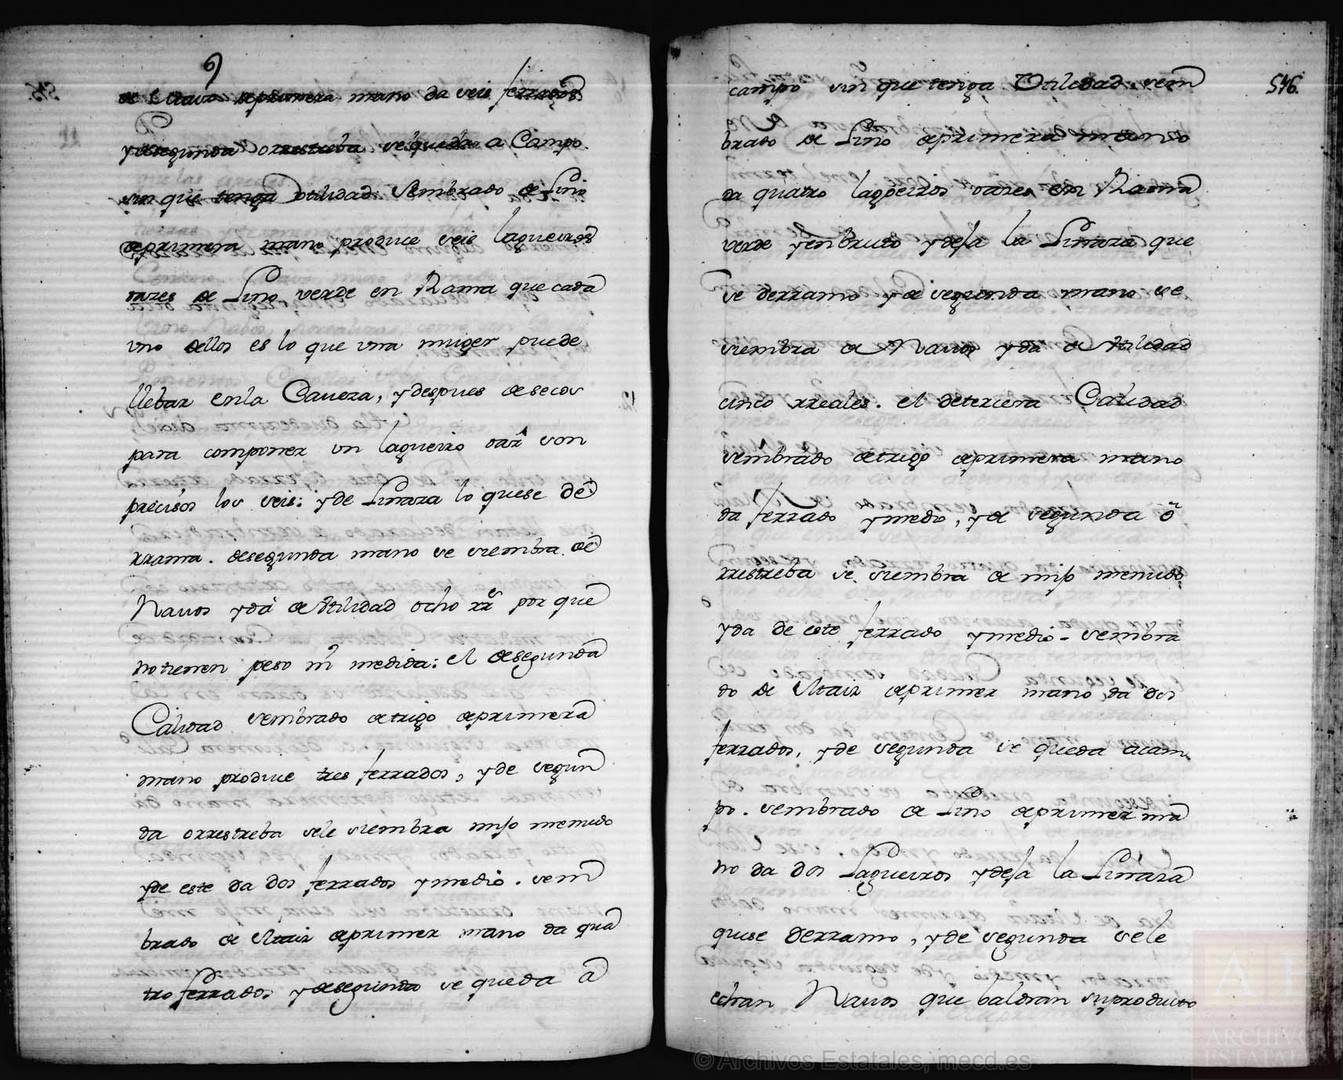 9
de Maiz deprimera mano da seis ferrados
ydesegunda orrestreba sequeda a Campo
sin que tenga Utilidad. Sembrado de Lino
deprimera mano produce seis lagueiros
oares de Lino verde en Rama que cada
uno dellos es lo que una muger puede
llebar enla Caveza, ydespues desecos
para componer un lagueiro oar son
precisos los seis: yde Linaza lo quese de
rrama. desegunda mano se siembra de
Navos yda de Utilidad ocho rr.s por que
notienen peso ni medida: el desegunda
Calidad sembrado detrigo deprimera
mano produce tres ferrados, yde segun
da orrestreba sele siembra mijo menudo
yde este da dos ferrados ymedio. sem
brado de Maiz deprimer mano da qua
tro ferrados ydesegunda se queda a
546.
campo sin que tenga Utilidad. sem
brado de Lino deprimera mano
da quatro lagueiros oares en Rama
verde yenbruto ydesa la Linaza que
se derramo yde segunda mano se
siembra de Navos yda de Utilidad
cinco rreales. el detercera Calidad
sembrado detrigo deprimera mano
da ferrado ymedio, yde segunda o
rrestreba se siembra de mijo menudo
yda de este ferrado ymedio - sembra
do de Maiz deprimer mano da dos
ferrados, yde segunda se queda acam
po. sembrado de Lino deprimer ma
no da dos Lagueiros ydesa la Linaza
quese derramo, yde segunda sele
echan Navos que baldran suproducto
© Archivos Estatales, mecd.es
ARCHIVO
ESTATAL